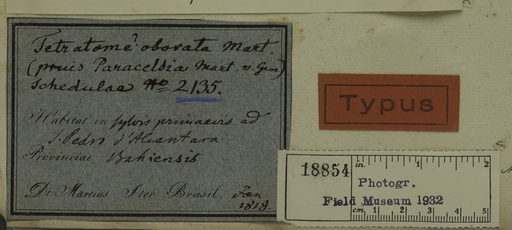 Tetratome obovata Mart.
(prius Paracelsia Mart. n. Gen)
Schedulae No 2135.
Habitat in sylvis primaevis ad
S. Pedro d'Alcantara
Provinciae Bahiensis
Dr. Martius Iter Brasil. Jan
1819.
Typus
18854
in. 1 2
Photogr.
Field Museum 1932
cm. 1 2 3 4 5